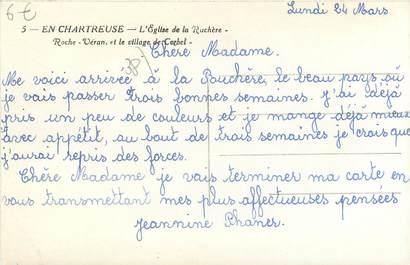 6€
Lundi 24 Mars.
5 — EN CHARTREUSE — L'Église de la Ruchère -
Roche - Véran, et le village de Corbel -
38
Chère Madame.
Me voici arrivée à la Rouchère, le beau pays où
je vais passer trois bonnes semaines. j'ai déjà
pris un peu de couleurs et je mange déjà mieux
avec appétit, au bout de trois semaines je crois que
j'aurai repris des forces.
Chère Madame je vais terminer ma carte en
vous transmettant mes plus affectueuses pensées
Jeannine